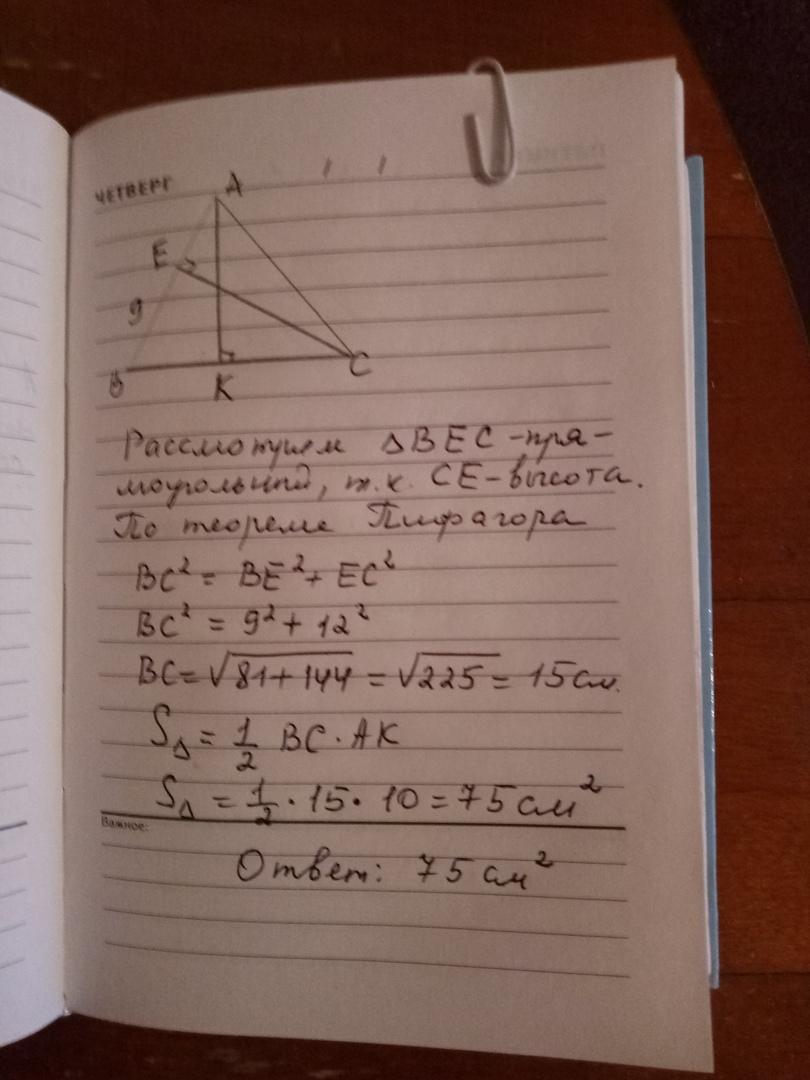 ЧЕТВЕРГ
A
E
9
B
K
C
Рассмотрим ΔBEC - пря-
моугольный, т.к. CE - высота.
По теореме Пифагора
BC² = BE² + EC²
BC² = 9² + 12²
BC = √81 + 144 = √225 = 15 см.
S△ = 1/2 BC · AK
S△ = 1/2 · 15 · 10 = 75 см²
Важное:
Ответ: 75 см²